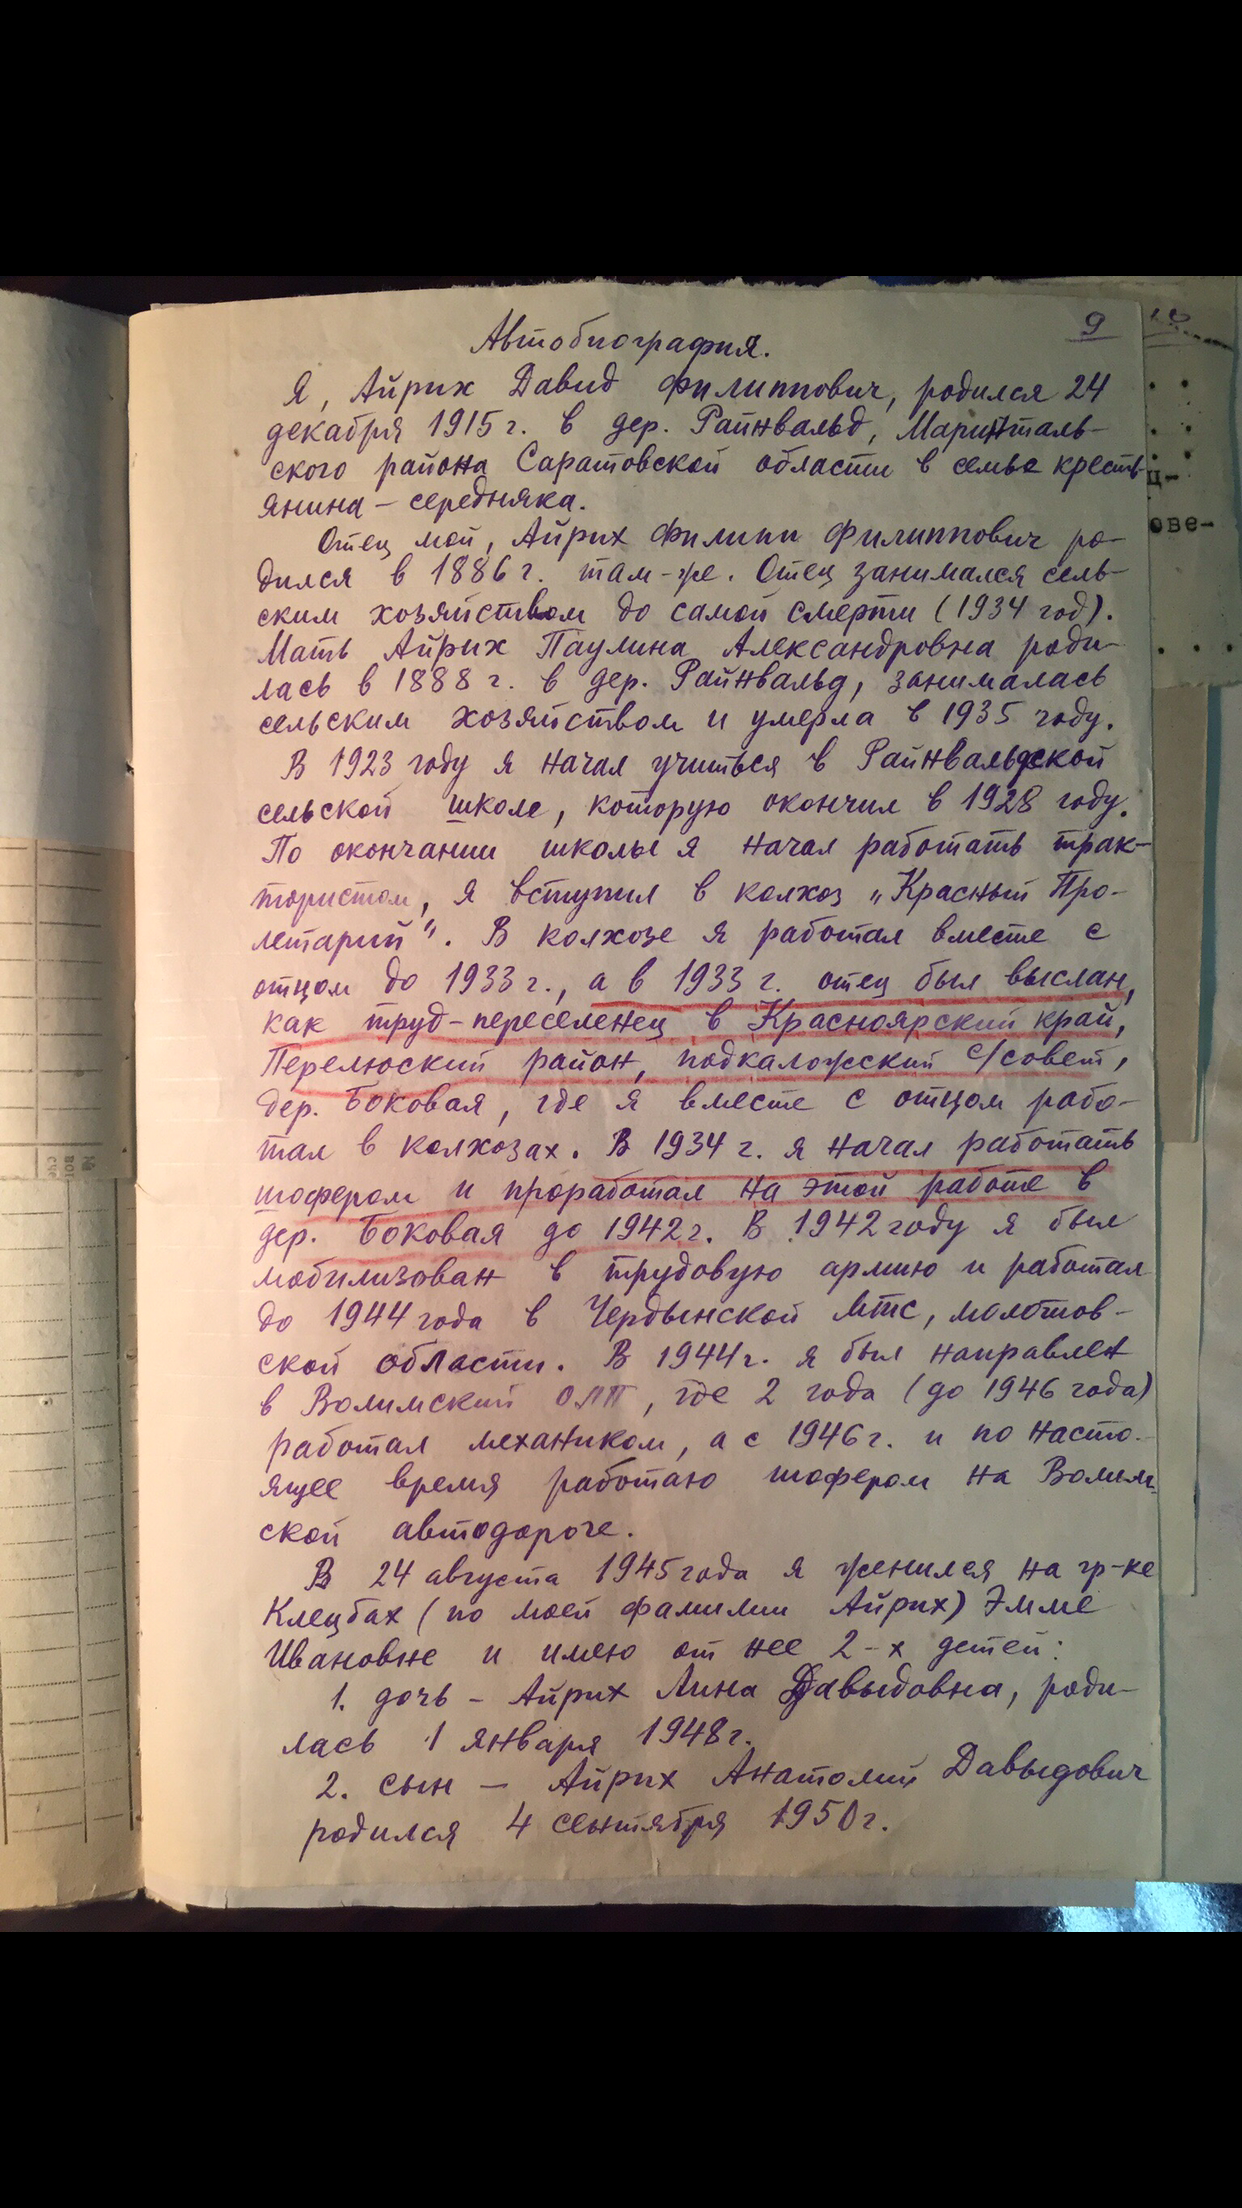 9
Автобиография.
Я, Айрих Давид Филиппович, родился 24
декабря 1915 г. в дер. Райнвальд, Маринталь-
ского района Саратовской области в семье кресть-
янина - середняка.
Отец мой, Айрих Филипп Филиппович ро-
дился в 1886 г. там-же. Отец занимался сель-
ским хозяйством до самой смерти (1934 год).
Мать Айрих Паулина Александровна роди-
лась в 1888 г. в дер. Райнвальд, занималась
сельским хозяйством и умерла в 1935 году.
В 1923 году я начал учиться в Райнвальдской
сельской школе, которую окончил в 1928 году.
По окончании школы я начал работать трак-
тористом, я вступил в колхоз „Красный Про-
летарий". В колхозе я работал вместе с
отцом до 1933 г., а в 1933 г. отец был выслан,
как труд-переселенец в Красноярский край,
Перелюский район, подкаложский с/совет,
дер. Боковая, где я вместе с отцом рабо-
тал в колхозах. В 1934 г. я начал работать
шофером и проработал на этой работе в
дер. Боковая до 1942 г. В 1942 году я был
мобилизован в трудовую армию и работал
до 1944 года в Чердынской МТС, молотов-
ской области. В 1944 г. я был направлен
в Волимский ОЛП, где 2 года (до 1946 года)
работал механиком, а с 1946 г. и по насто-
ящее время работаю шофером на Волим-
ской автодороге.
В 24 августа 1945 года я женился на гр-ке
Клецбах (по моей фамилии Айрих) Эмме
Ивановне и имею от нее 2-х детей:
1. дочь - Айрих Анна Давыдовна, роди-
лась 1 января 1948 г.
2. сын - Айрих Анатолий Давыдович
родился 4 сентября 1950 г.
ц-
ове-